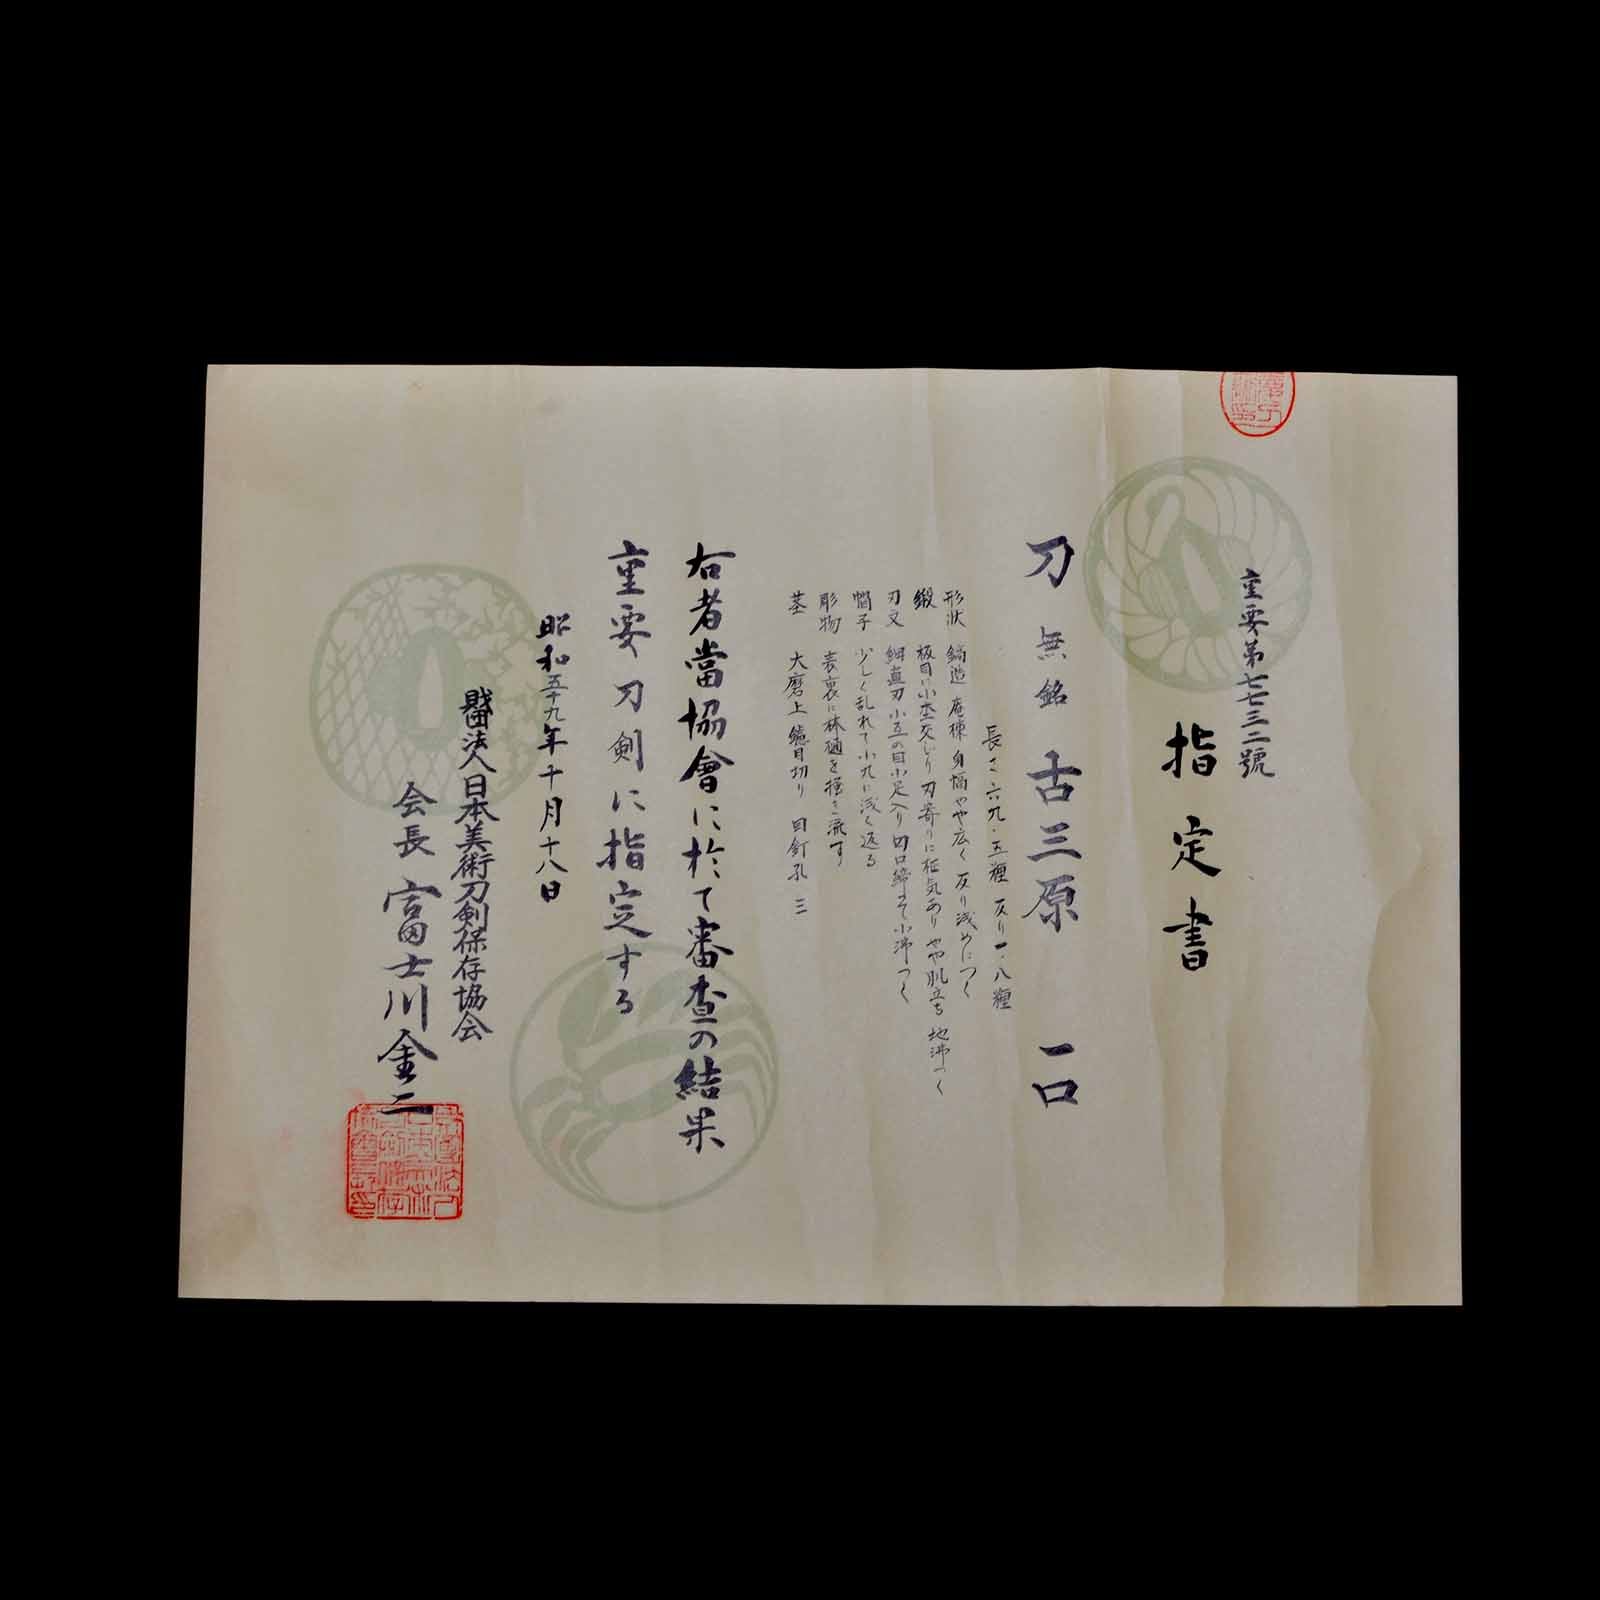 重要第七七三二號
指定書
刀 無銘 古三原 一口
長さ 六九・五糎 反り 一・八糎
形状 鎬造 庵棟 身幅やや広く 反り浅めにつく
鍛 板目に小杢交じり 刃寄りに柾気あり やや肌立ち 地沸つく
刃文 細直刃 小互の目小足入り 匂口締まって小沸つく
帽子 少しく乱れて小丸に浅く返る
彫物 表裏に棒樋を掻き流す
茎 大磨上 鑢目切り 目釘孔 三
右者當協會に於て審査の結果
重要刀剣に指定する
昭和五十九年十月十八日
財団法人日本美術刀剣保存協会
会長 富士川金二